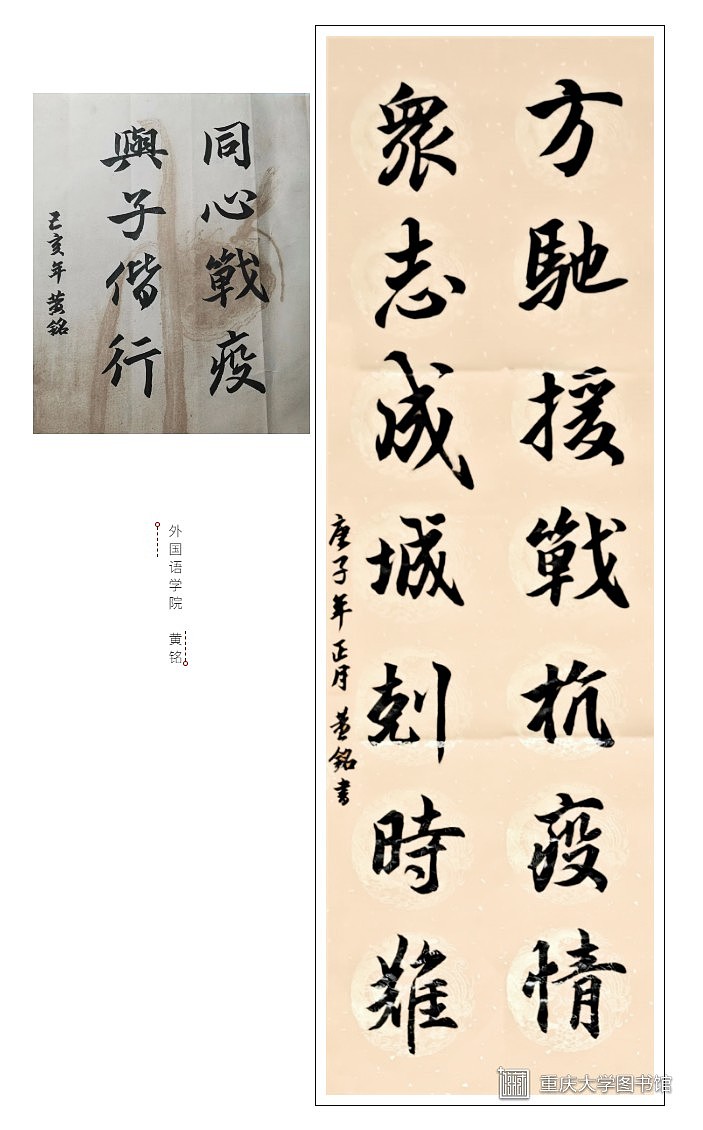 同心戰疫
與子偕行
己亥年黄铭
外国语学院 黄铭
方馳援戰抗疫情
衆志成城剋時難
庚子年正月 黄銘書
重庆大学图书馆